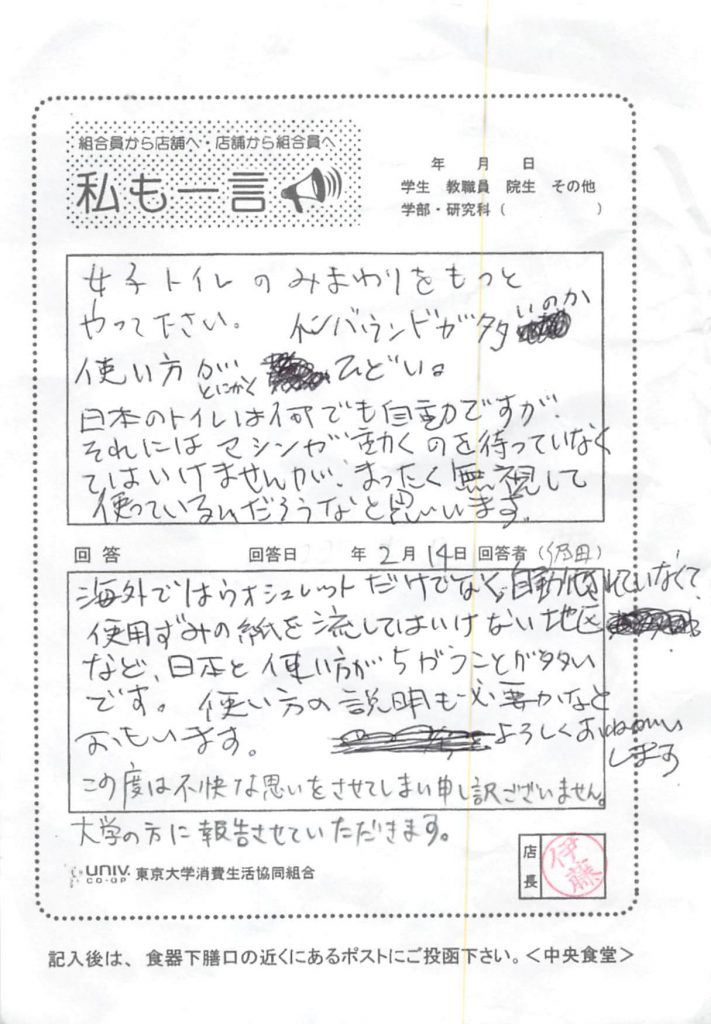 組合員から店舗へ・店舗から組合員へ
私も一言
年 月 日
学生 教職員 院生 その他
学部・研究科( )
女子トイレのみまわりをもっと
やって下さい。 インバウンドが多いのか
使い方がとにかくひどい。
日本のトイレは何でも自動ですが、
それにはマシンが動くのを待っていなく
てはいけませんが、まったく無視して
使っているんだろうなと思います。
回答 回答日 年 2月 14日 回答者( )
海外ではウオシュレットだけでなく、自動化されていなくて
使用ずみの紙を流してはいけない地区
など、日本と使い方がちがうことが多い
です。 使い方の説明も必要かなと
おもいます。 よろしくおねがい
します
この度は不快な思いをさせてしまい申し訳ございません。
大学の方に報告させていただきます。
UNIV. CO-OP 東京大学消費生活協同組合
店長 伊藤
記入後は、食器下膳口の近くにあるポストにご投函下さい。<中央食堂>